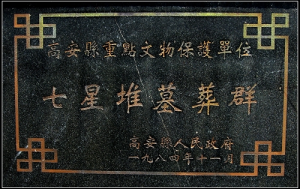 高安縣重點文物保護單位
七星堆墓葬群
高安縣人民政府
一九八四年十一月